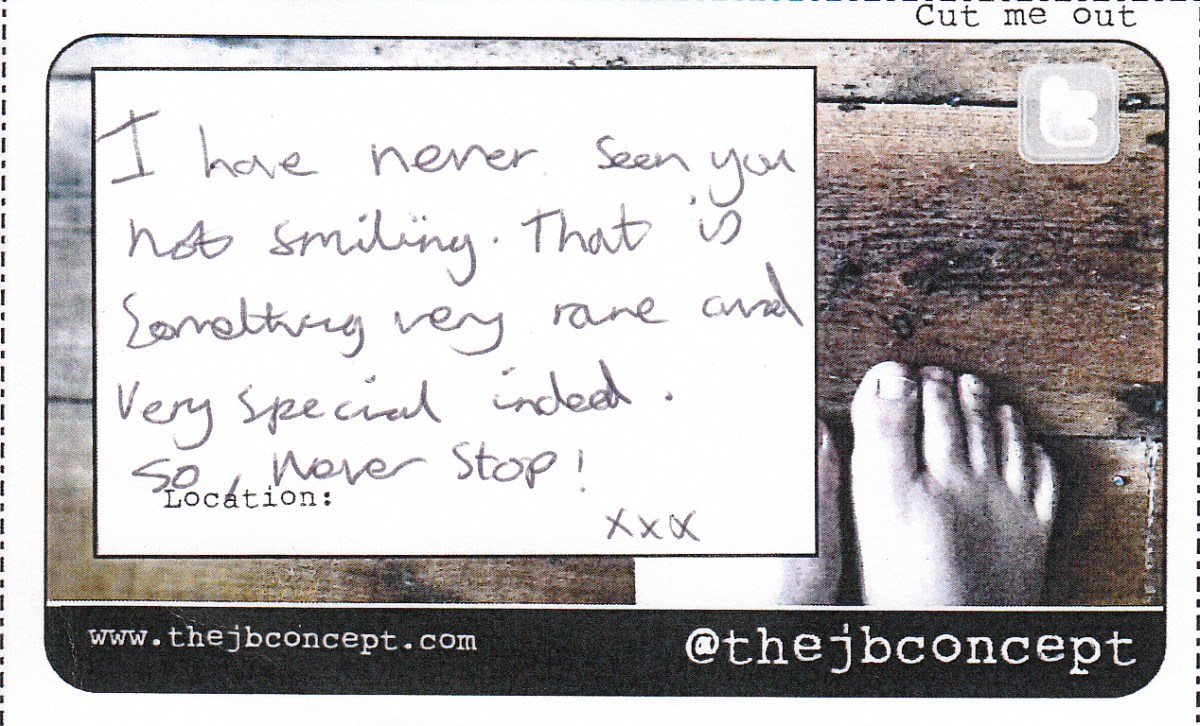 Cut me out
I have never seen you
not smiling. That is
Something very rare and
very special indeed.
So, Never Stop!
Location:
xxx
www.thejbconcept.com
@thejbconcept